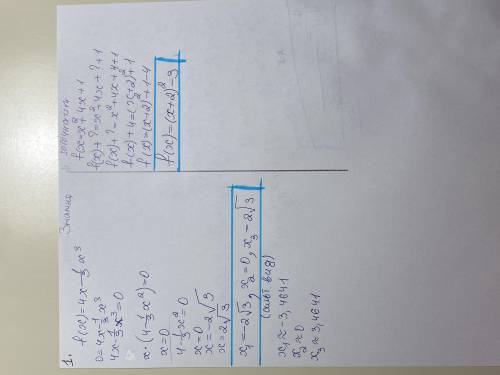 Знания
1. f(x)=4x-1/3x³
0=4x-1/3x³
4x-1/3x³=0
x·(4-1/3x²)=0
x=0
4-1/3x²=0
x=0
x=-2√3
x=2√3
x₁=-2√3, x₂=0, x₃-2√3
x₁≈-3,4641
x₂≈0
x₃≈3,4641
f(x=x²+4x+1
f(x)+?=x²+4x+?+1
f(x)+?-x²+4x+4+1
f(x)+4=(x+2)²+1
f(x)=(x+2)²+1-4
f(x)=(x+2)²-3